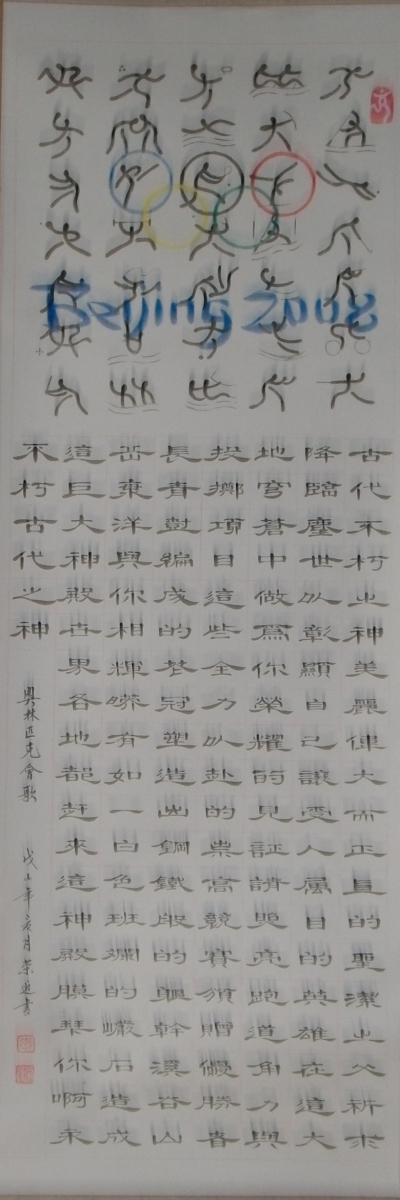 Beijing 2008
古代不朽之神美麗偉大而正直的聖潔之父祈求
降臨塵世以彰顯自己讓受人屬目的英雄在這大
地穹蒼中做為你榮耀的見証請照亮跑道角力與
投擲項目這些全力以赴的崇高競賽頒贈優勝者
長青樹編成的花冠塑造出鋼鐵般的軀幹溪谷山
岳洋與你相輝映有如一白色班斕的巖石造成
這巨大神殿世界各地都趕來這神殿膜拜你啊永
不朽古代之神
奧林匹克會歌
戊子年亥月書